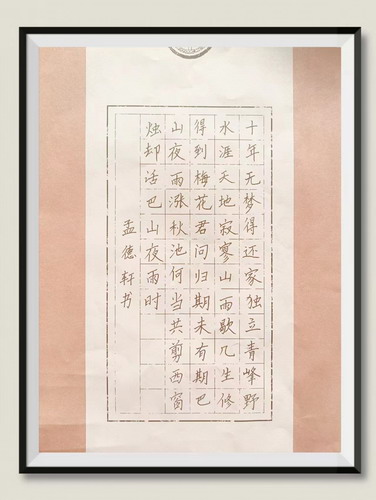 十年无梦得还家独立青峰野
水涯天地寂寥山雨歇几生修
得到梅花君问归期未有期巴
山夜雨涨秋池何当共剪西窗
烛却话巴山夜雨时
孟德轩书